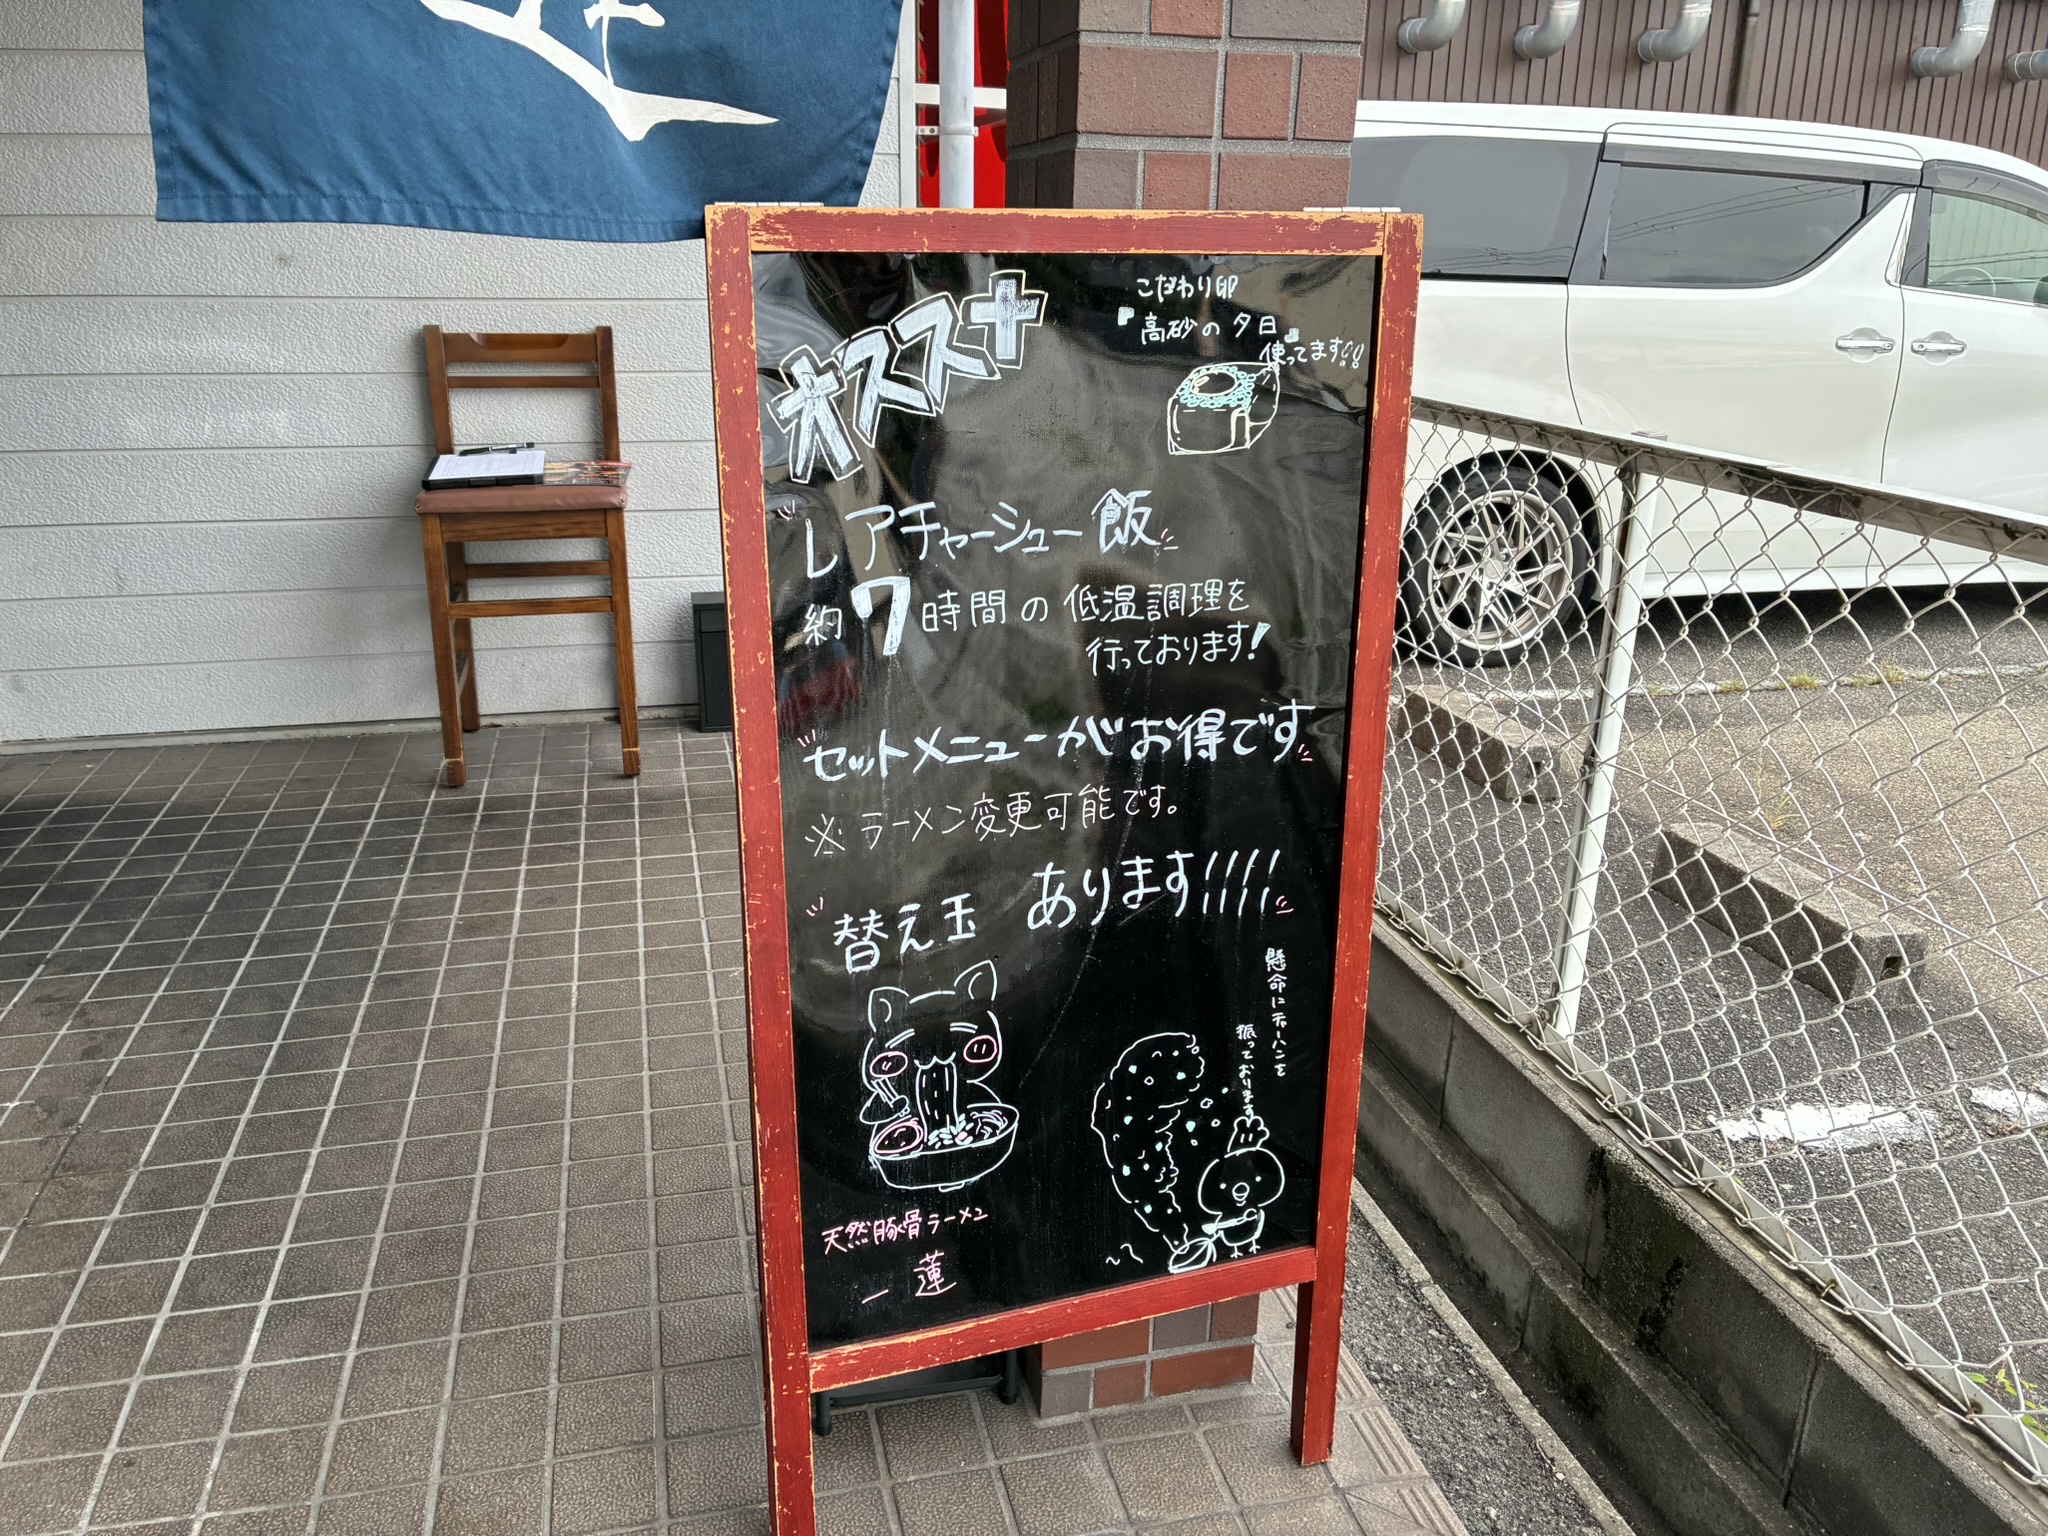 オススメ
こだわり卵
『高砂の夕日』
使ってます!!
レアチャーシュー飯
約7時間の低温調理を
行っております!
セットメニューがお得です
※ラーメン変更可能です。
替え玉 あります!!!!
懸命にチャーハンを
振っております
天然豚骨ラーメン
一蓮